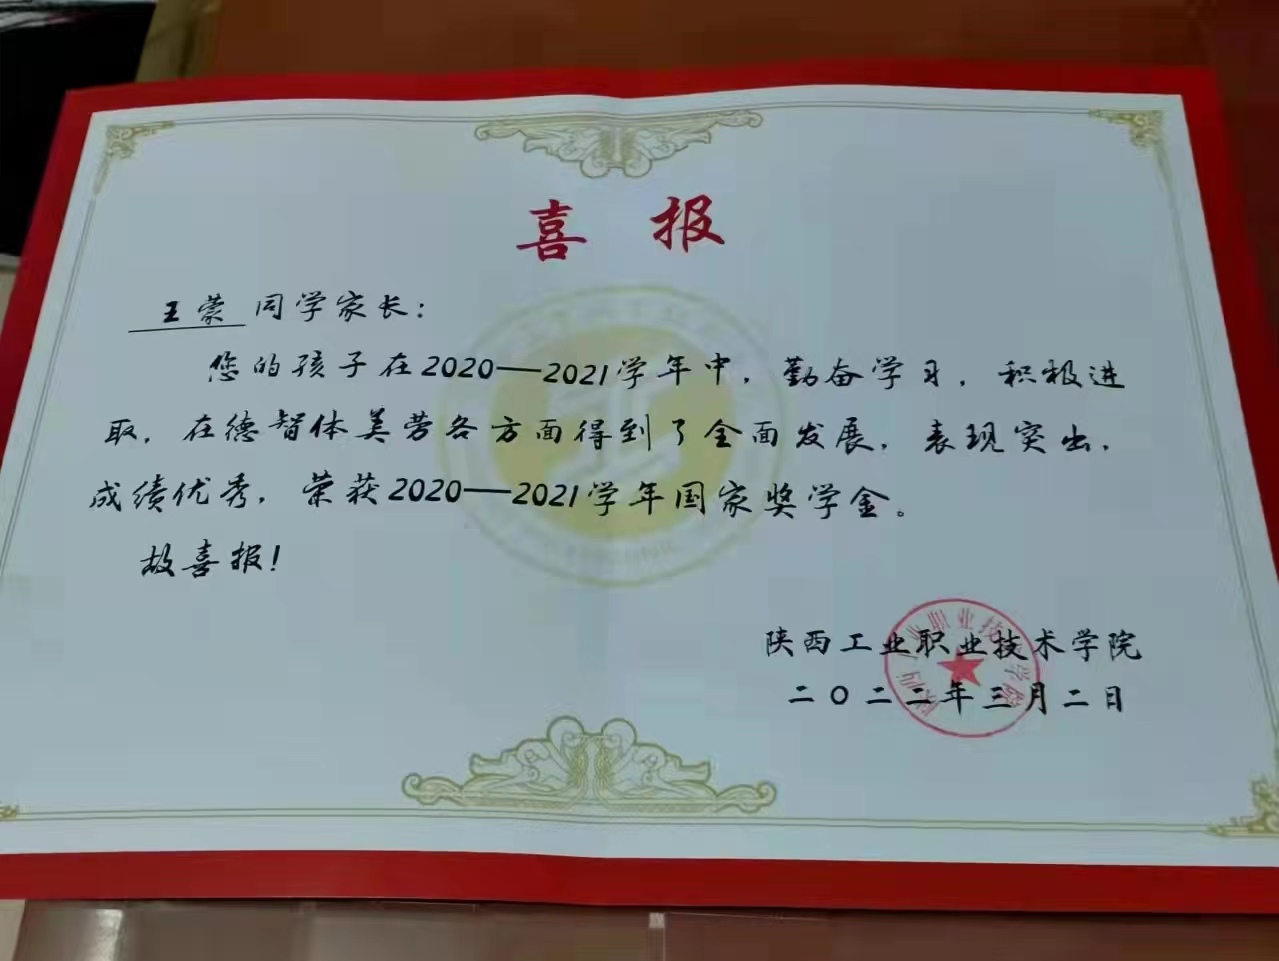 喜报
王蒙 同学家长：
您的孩子在2020—2021学年中，勤奋学习，积极进
取，在德智体美劳各方面得到了全面发展，表现突出，
成绩优秀，荣获2020—2021学年国家奖学金。
故喜报！
陕西工业职业技术学院
二〇二二年三月二日